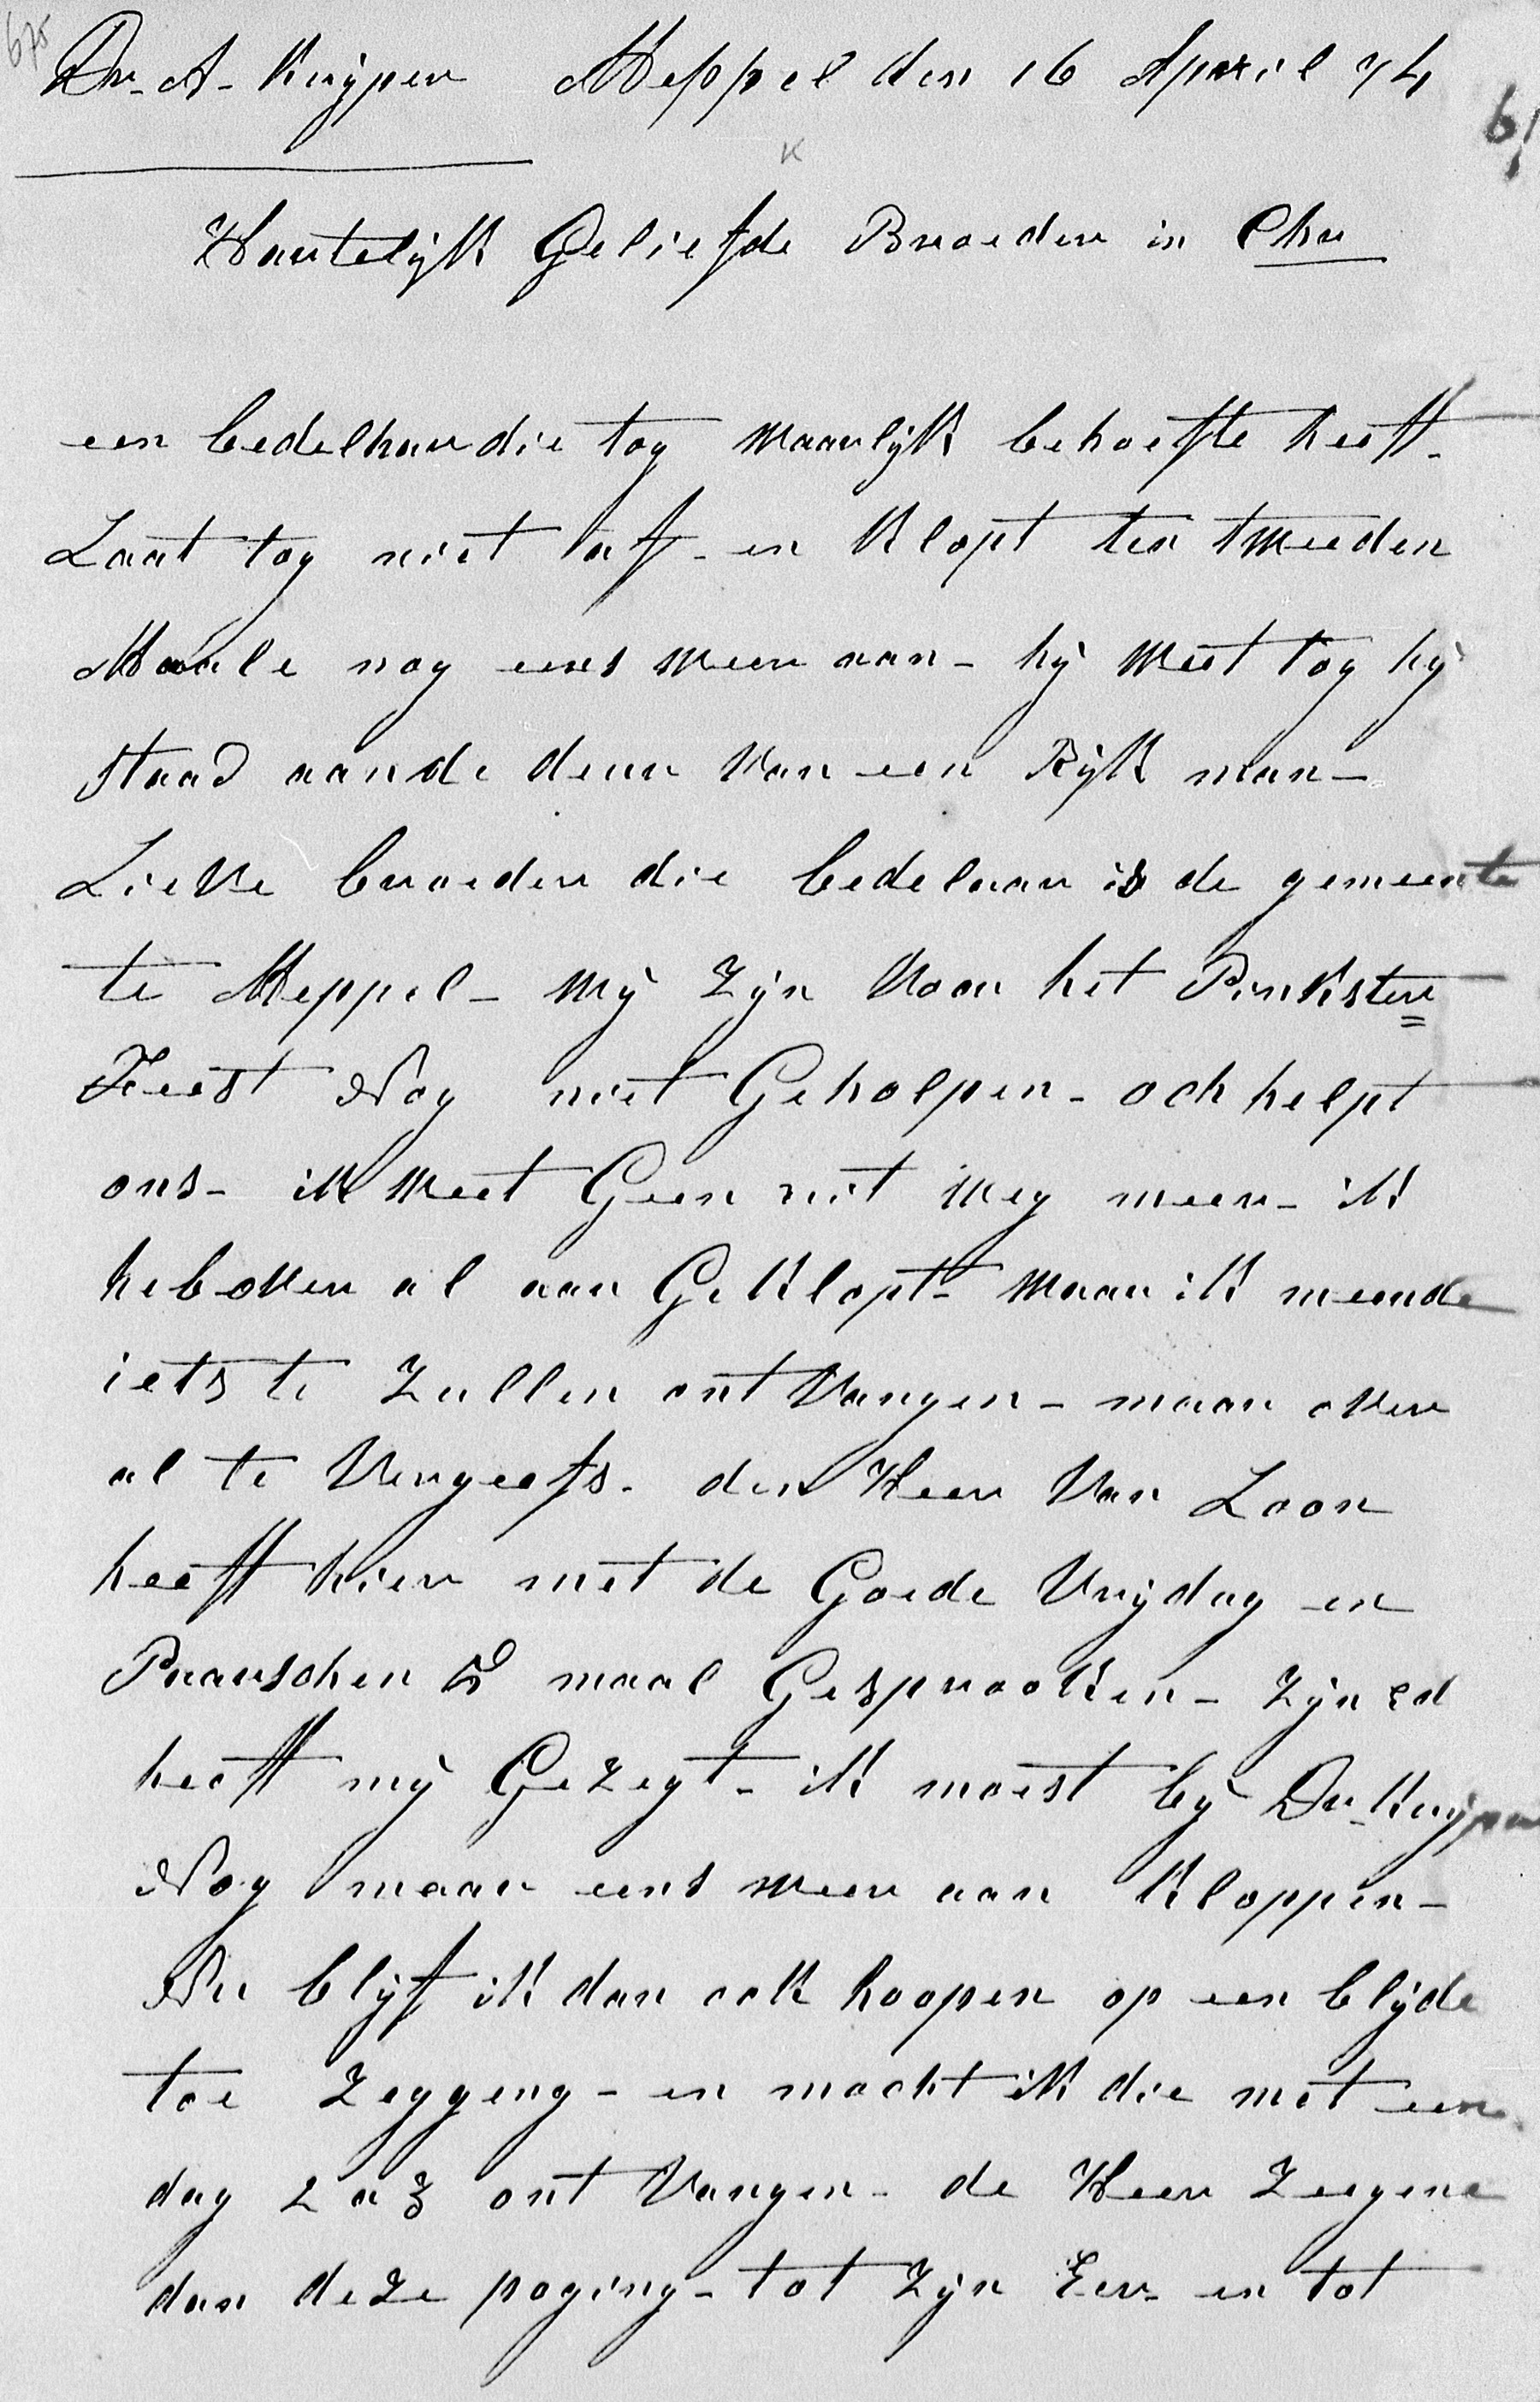 675
Dr. A. Kuijper Meppel den 16 April 74
K
Hartelijk Geliefde Broeder in Chr
een bedelhaar die tog waarlijk behoefte heeft.
Laat tog niet af - en klopt ten tweeden
Maale nog eens weer aan - hij weet tog hij
staad aan de deur van een Rijk man -
Lieve broeder die bedelaar is de gemeente
te Meppel - wij zijn voor het Pinkster=
Feest Nog niet Geholpen - och helpt
ons - ik weet Geen uit weg meer - ik
heb over al aan Geklopt - waar ik meende
iets te zullen ont vangen - maar over
al te vergeefs. den Heer Van Loon
heeft hier met de Goede Vrijdag en
Paaschen 3 maal Gesprooken - zijn ed
heeft mij Gezegt - ik moest bij Dr. Kuijper
Nog maar eens weer aan kloppen -
Nu blijf ik dan ook hoopen op een blijde
toe zegging - en mocht ik die met een
dag 2 a 3 ont vangen - de Heer zeegene
dan deze poging - tot zijn Eer - en tot